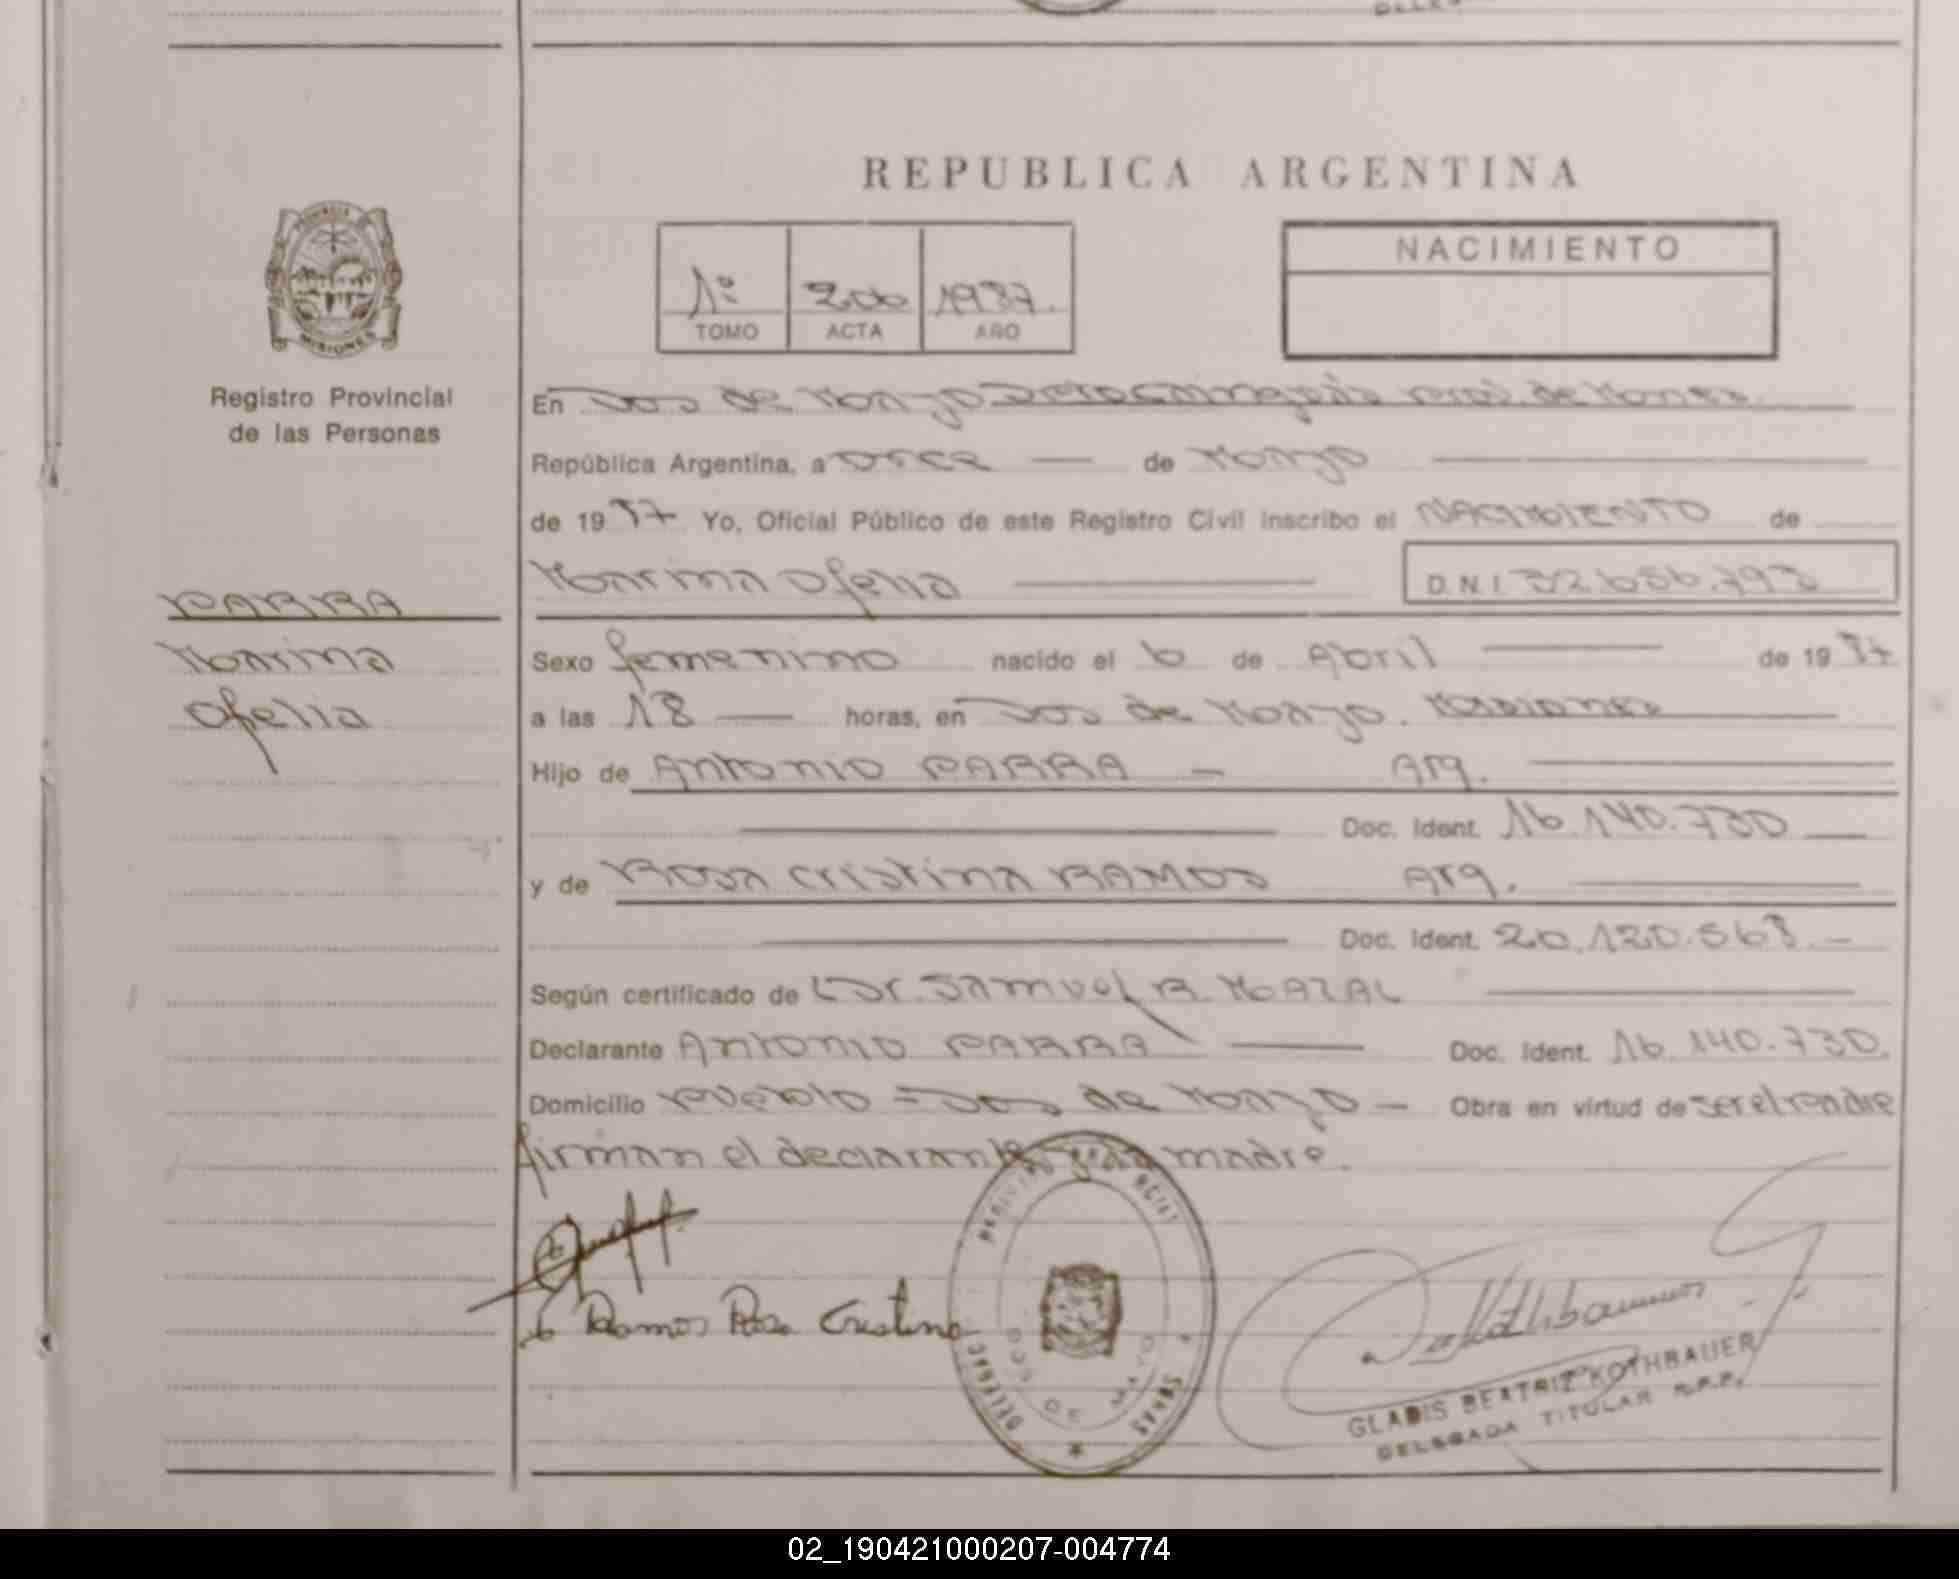 REPUBLICA ARGENTINA
PROVINCIA
MISIONES
Registro Provincial
de las Personas
1º 200 1987.
TOMO ACTA AÑO
NACIMIENTO
En Dos de Mayo Depto Cainguás Prov. de Mones.
República Argentina, a once — de Mayo
de 1987 Yo, Oficial Público de este Registro Civil inscribo el NACIMIENTO de
Marina Ofelia
D.N.I. 32.656.793
PARRA
Marina
Ofelia
Sexo femenino nacido el 6 de Abril de 1987
a las 18 — horas, en Dos de Mayo. Misiones
Hijo de Antonio PARRA — Arg.
Doc. Ident. 16.140.730
y de Rosa Cristina RAMOS Arg.
Doc. Ident. 20.120.568.—
Según certificado de Dr. Samuel R. MAZAL
Declarante Antonio PARRA Doc. Ident. 16.140.730.
Domicilio Pueblo = Dos de Mayo — Obra en virtud de ser el padre
firman el declarante y la madre.
Ramos Rosa Cristina
DOS DE MAYO
GLADIS BEATRIZ KOTHBAUER
DELEGADA TITULAR R.P.P.
02_190421000207-004774